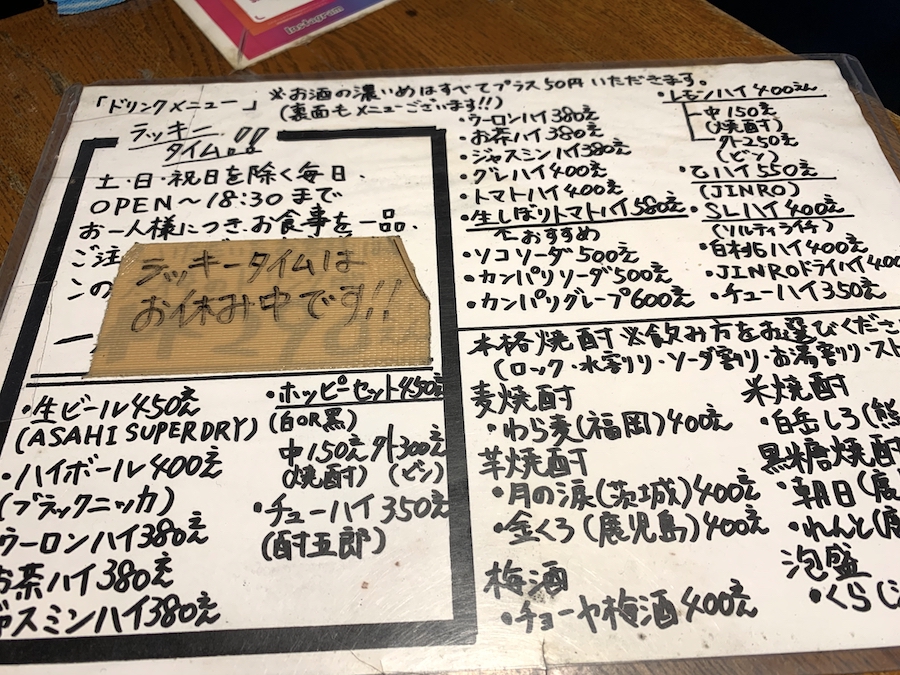 Instagram
「ドリンクメニュー」
※お酒の濃いめはすべてプラス50円いただきます。
(裏面もメニューございます!!)
ラッキー
タイム!!
土・日・祝日を除く毎日、
OPEN～18:30まで
お一人様につき、お食事を一品、
ご注
この
ラッキータイムは
お休み中です!!
・生ビール450え
(ASAHI SUPERDRY)
・ハイボール400え
(ブラックニッカ)
ウーロンハイ380え
お茶ハイ380え
ジャスミンハイ380え
・ホッピーセット450え
(白OR黒)
中150え 外300え
(焼酎) (ビン)
・チューハイ350え
(酎五郎)
・ウーロンハイ380え
・お茶ハイ380え
・ジャスミンハイ380え
・グレハイ400え
・トマトハイ400え
・生しぼりトマトハイ580え
↑おすすめ
・ソコソーダ500え
・カンパリソーダ500え
・カンパリグレープ600え
・レモンハイ400えん
中150え
(焼酎)
外250え
(ビン)
・乙ハイ550え
(JINRO)
・SLハイ400え
(ソルティライチ)
・白桃ハイ400え
・JINROドライハイ400
・チューハイ350え
本格焼酎※飲み方をお選びくださ
(ロック・水割り・ソーダ割り・お湯割り・スト
麦焼酎
・わら麦(福岡)400え
芋焼酎
・月の涙(茨城)400え
・金くろ(鹿児島)400え
梅酒
・チョーヤ梅酒400え
米焼酎
・白岳しろ(熊
黒糖焼酎
・朝日(鹿
・れんと(鹿
泡盛
・くら(